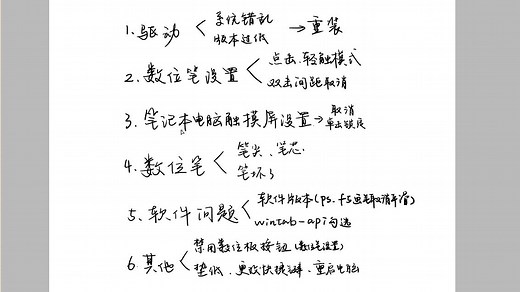 系统错乱
1.驱动 → 重装
版本过低
点击.轻触模式
2.数位笔设置
双击间距取消
3.笔记本电脑触摸屏设置→取消
单击锁定
笔尖、笔芯.
4.数位笔
笔坏了
软件版本(ps.fs取消平滑)
5.软件问题
wintab-api勾选
禁用数位板按钮(数位笔设置)
6.其他
垫低、更改快捷键、重启电脑